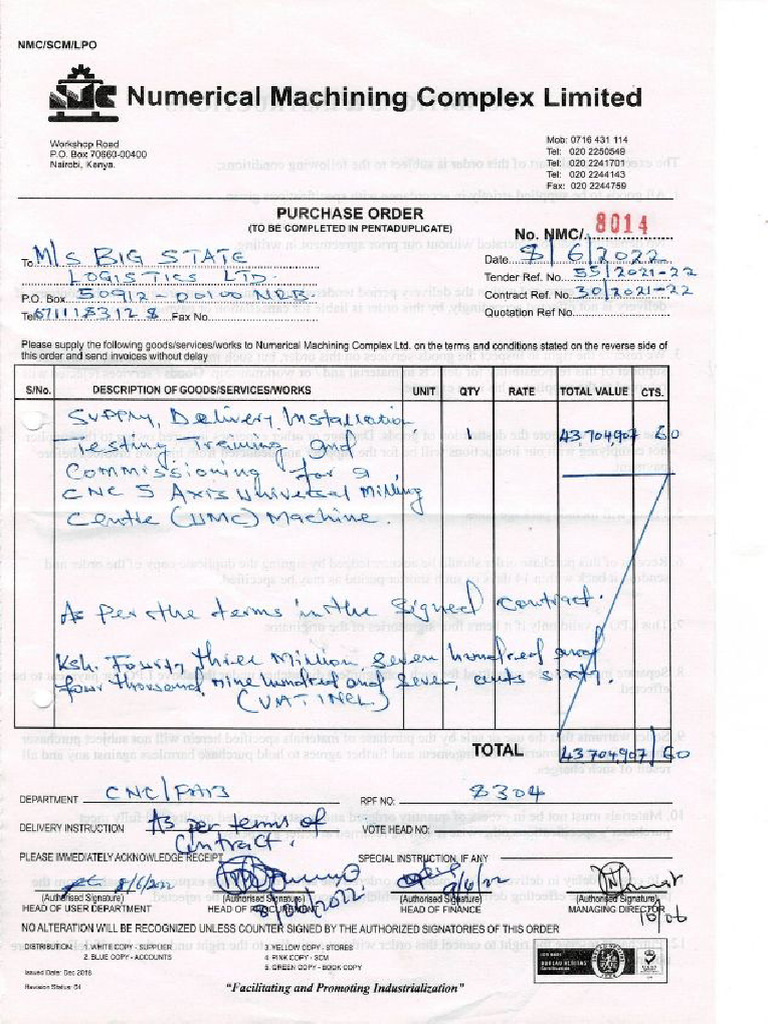 NMC/SCM/LPO
NMC Numerical Machining Complex Limited
Workshop Road
P.O. Box 70660-00400
Nairobi, Kenya.
Mob: 0716 431 114
Tel: 020 2250549
Tel: 020 2241701
Tel: 020 2244143
Fax: 020 2244759
PURCHASE ORDER
(TO BE COMPLETED IN PENTADUPLICATE)
No. NMC/. 8014
To M/S BIG STATE
LOGISTICS LTD.
P.O. Box 50912-00100 NRB
Tel 0711183128 Fax No.
Date 8/6/2022
Tender Ref. No. 55/2021-22
Contract Ref. No. 30/2021-22
Quotation Ref No.
Please supply the following goods/services/works to Numerical Machining Complex Ltd. on the terms and conditions stated on the reverse side of
this order and send invoices without delay
S/No. DESCRIPTION OF GOODS/SERVICES/WORKS UNIT QTY RATE TOTAL VALUE CTS.
Supply, Delivery, Installation 1 43704,907 60
Testing Training and
Commissioning for a
CNC 5 Axis Universal Milling
Centre (UMC) Machine.
As per the terms in the signed contract.
Ksh. Fourty three Million, seven hundred and
four thousand nine hundred and seven, cents sixty.
(VAT INCL)
TOTAL 43704,907/60
DEPARTMENT CNC/FAB RPF NO: 8304
DELIVERY INSTRUCTION As per terms of contract. VOTE HEAD NO:
PLEASE IMMEDIATELY ACKNOWLEDGE RECEIPT SPECIAL INSTRUCTION, IF ANY
8/6/2022 8/06/2022 9/6/22 10/06
(Authorised Signature) (Authorised Signature) (Authorised Signature) (Authorised Signature)
HEAD OF USER DEPARTMENT HEAD OF FINANCE MANAGING DIRECTOR
NO ALTERATION WILL BE RECOGNIZED UNLESS COUNTER SIGNED BY THE AUTHORIZED SIGNATORIES OF THIS ORDER
DISTRIBUTION: 1. WHITE COPY - SUPPLIER 3. YELLOW COPY - STORES
2. BLUE COPY - ACCOUNTS 4. PINK COPY - SCM
5. GREEN COPY - BOOK COPY
Issued Date: Dec 2018
Revision Status: 04
"Facilitating and Promoting Industrialization"
BUREAU VERITAS
Certification